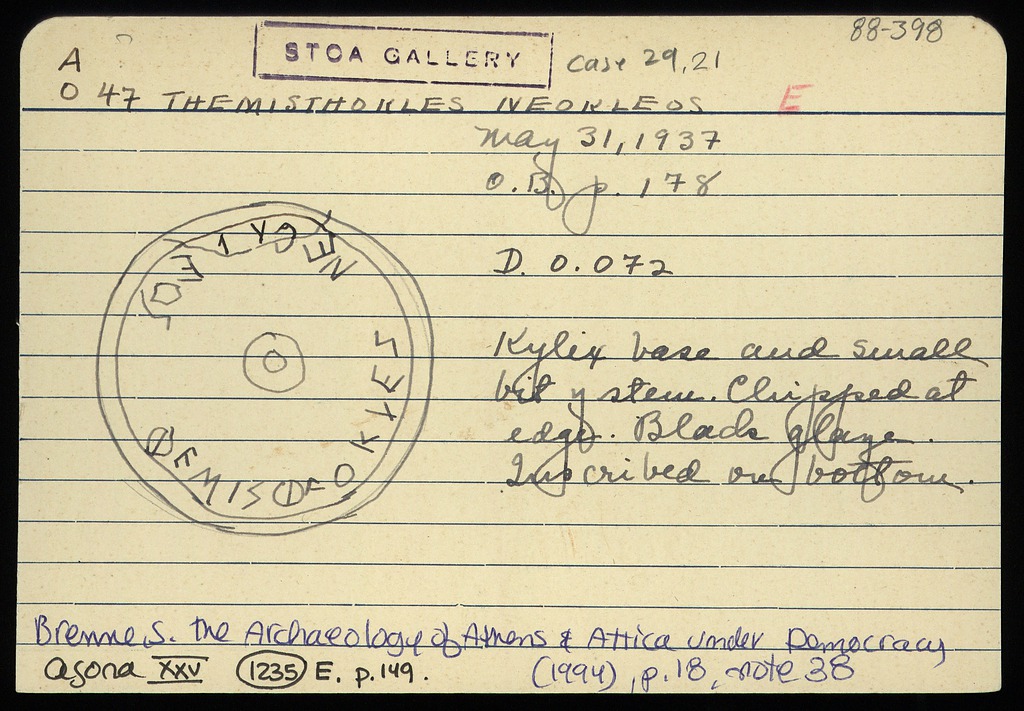 88-398
A
STOA GALLERY
case 29,21
O 47 THEMISTHOKLES NEOKLEOS
E
May 31, 1937
O.B. p. 178
D. 0.072
Kylix base and small
bit of stem. Chipped at
edge. Black glaze.
Inscribed on bottom.
Brenne, S. The Archaeology of Athens & Attica under Democracy
(1994), p.18, note 38
Agora XXV 1235 E. p.149.